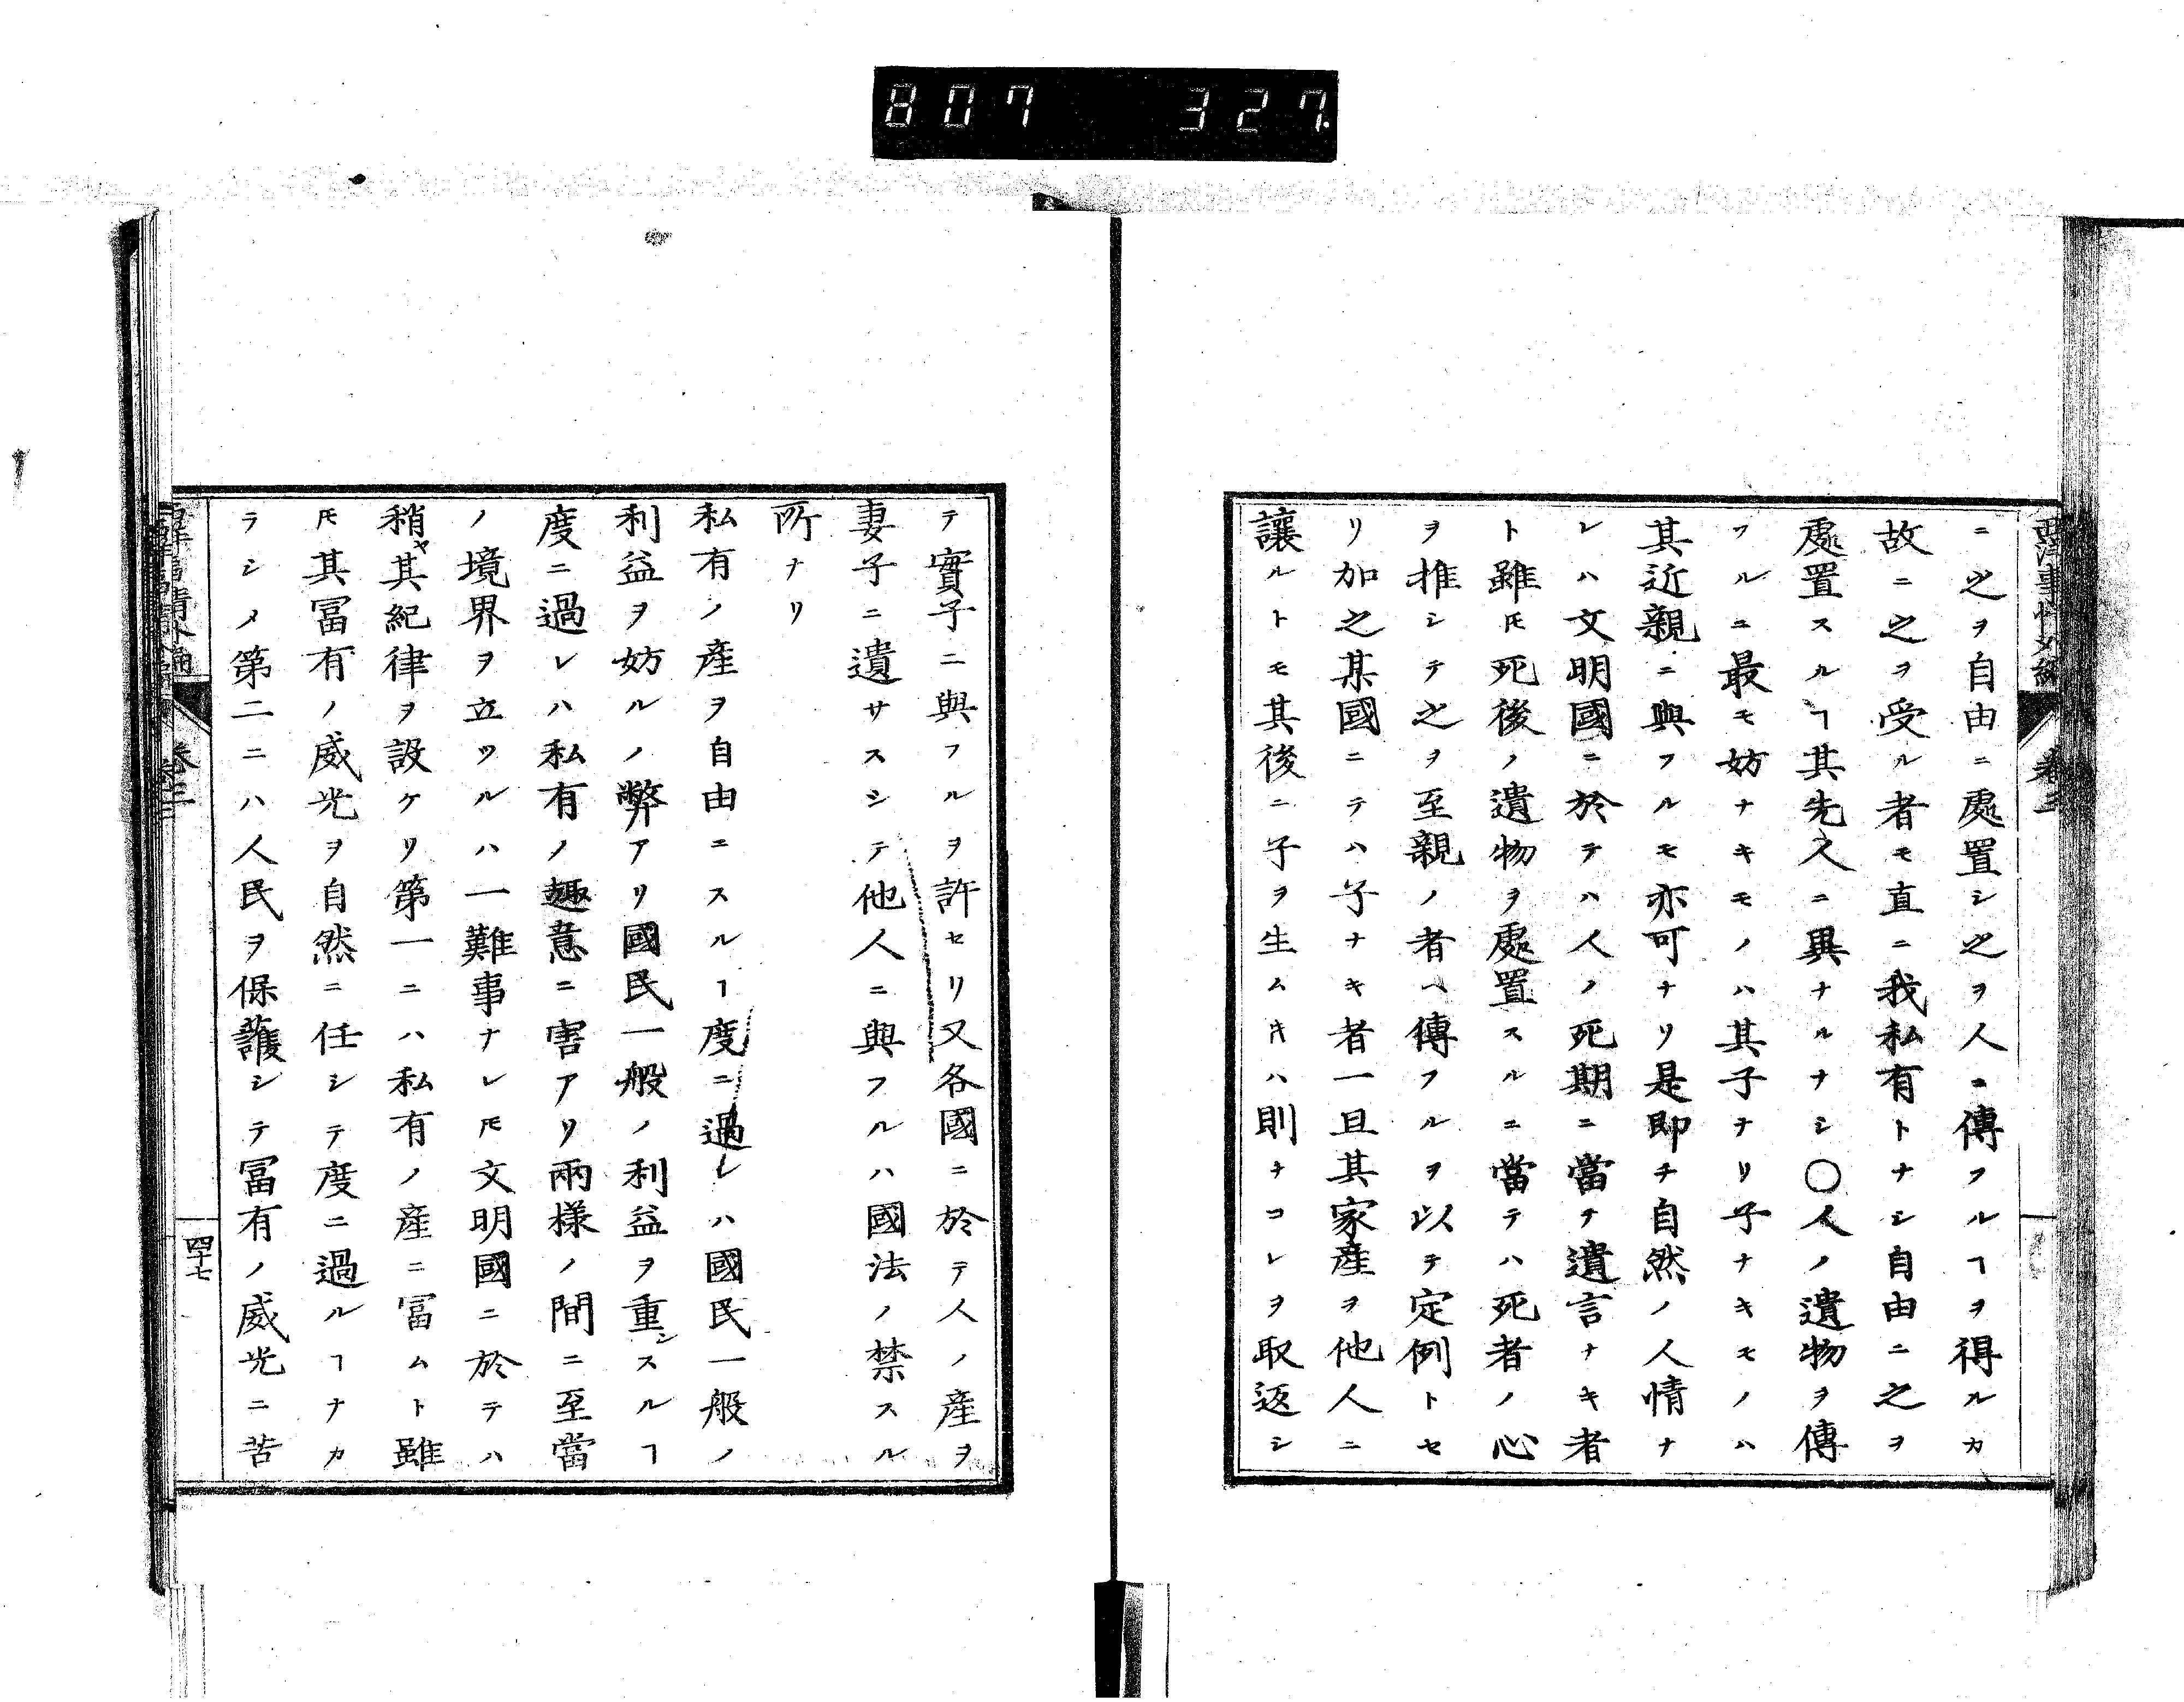 807 327
ニ之ヲ自由ニ處置シ之ヲ人ニ傳フルヿヲ得ルカ
故ニ之ヲ受ル者モ直ニ我私有トナシ自由ニ之ヲ
處置スルヿ其先人ニ異ナルナシ〇人ノ遺物ヲ傳
フルニ最モ妨ナキモノハ其子ナリ子ナキモノハ
其近親ニ與フルモ亦可ナリ是即チ自然ノ人情ナ
レハ文明國ニ於テハ人ノ死期ニ當テ遺言ナキ者
ト雖𪜈死後ノ遺物ヲ處置スルニ當テハ死者ノ心
ヲ推シテ之ヲ至親ノ者ヘ傳フルヲ以テ定例トセ
リ加之某國ニテハ子ナキ者一旦其家産ヲ他人ニ
讓ルトモ其後ニ子ヲ生ムキハ則チコレヲ取返シ
テ實子ニ與フルヲ許セリ又各國ニ於テ人ノ産ヲ
妻子ニ遺サスシテ他人ニ與フルハ國法ノ禁スル
所ナリ
私有ノ産ヲ自由ニスルヿ度ニ過レハ國民一般ノ
利益ヲ妨ルノ弊アリ國民一般ノ利益ヲ重シスルヿ
度ニ過レハ私有ノ趣意ニ害アリ兩樣ノ間ニ至當
ノ境界ヲ立ツルハ一難事ナレ𪜈文明國ニ於テハ
稍ヤ其紀律ヲ設ケリ第一ニハ私有ノ産ニ冨ムト雖
𪜈其冨有ノ威光ヲ自然ニ任シテ度ニ過ルヿナカ
ラシメ第二ニハ人民ヲ保護シテ冨有ノ威光ニ苦
卷三
四十七